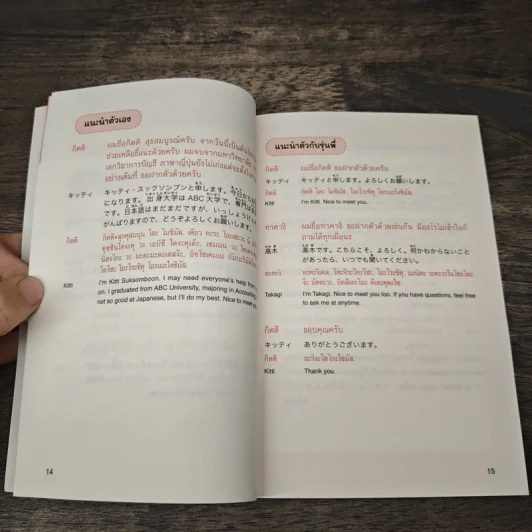 แนะนำตัวเอง
กิตติ ผมชื่อกิตติ สุขสมบูรณ์ครับ จากวันนี้เป็นต้นไป
ช่วยเหลือชี้แนะด้วยครับ ผมจบจากมหาวิทยาลัย
เอกวิชาการบัญชี ภาษาญี่ปุ่นยังไม่เก่งแต่จะตั้งใจ
อย่างเต็มที่ ขอฝากตัวด้วยครับ
キッティ キッティ・スックソンブンと申します。今日から
になります。出身大学は ABC 大学で、専門は
です。日本語はまだまだですが、いっしょうけんめい
がんばりますので、どうぞよろしくお願いします。
กิตติ
Kitti I'm Kitti Suksomboon. I may need everyone's help from
on. I graduated from ABC University, majoring in Accounting.
not so good at Japanese, but I'll do my best. Nice to meet you.
14
แนะนำตัวกับรุ่นพี่
กิตติ ผมชื่อกิตติ ขอฝากตัวด้วยครับ
キッティ キッティと申します。よろしくお願いします。
กิตติ กิตติ โตะ โมชิมัส. โยะโระชิขุ โอะเนะไงชิมัส
Kitti I'm Kitti. Nice to meet you.
ทาคางิ ผมชื่อทาคางิ ขอฝากตัวด้วยเช่นกัน มีอะไรไม่เข้าใจก็
ถามได้ทุกเมื่อนะ
高木 高木です。こちらこそ、よろしく。何かわからないこと
があったら、いつでも聞いてください。
Takagi I'm Takagi. Nice to meet you too. If you have questions, feel free
to ask me at anytime.
กิตติ ขอบคุณครับ
キッティ ありがとうございます。
กิตติ อะริงะโตโกะไซมัส
Kitti Thank you.
15